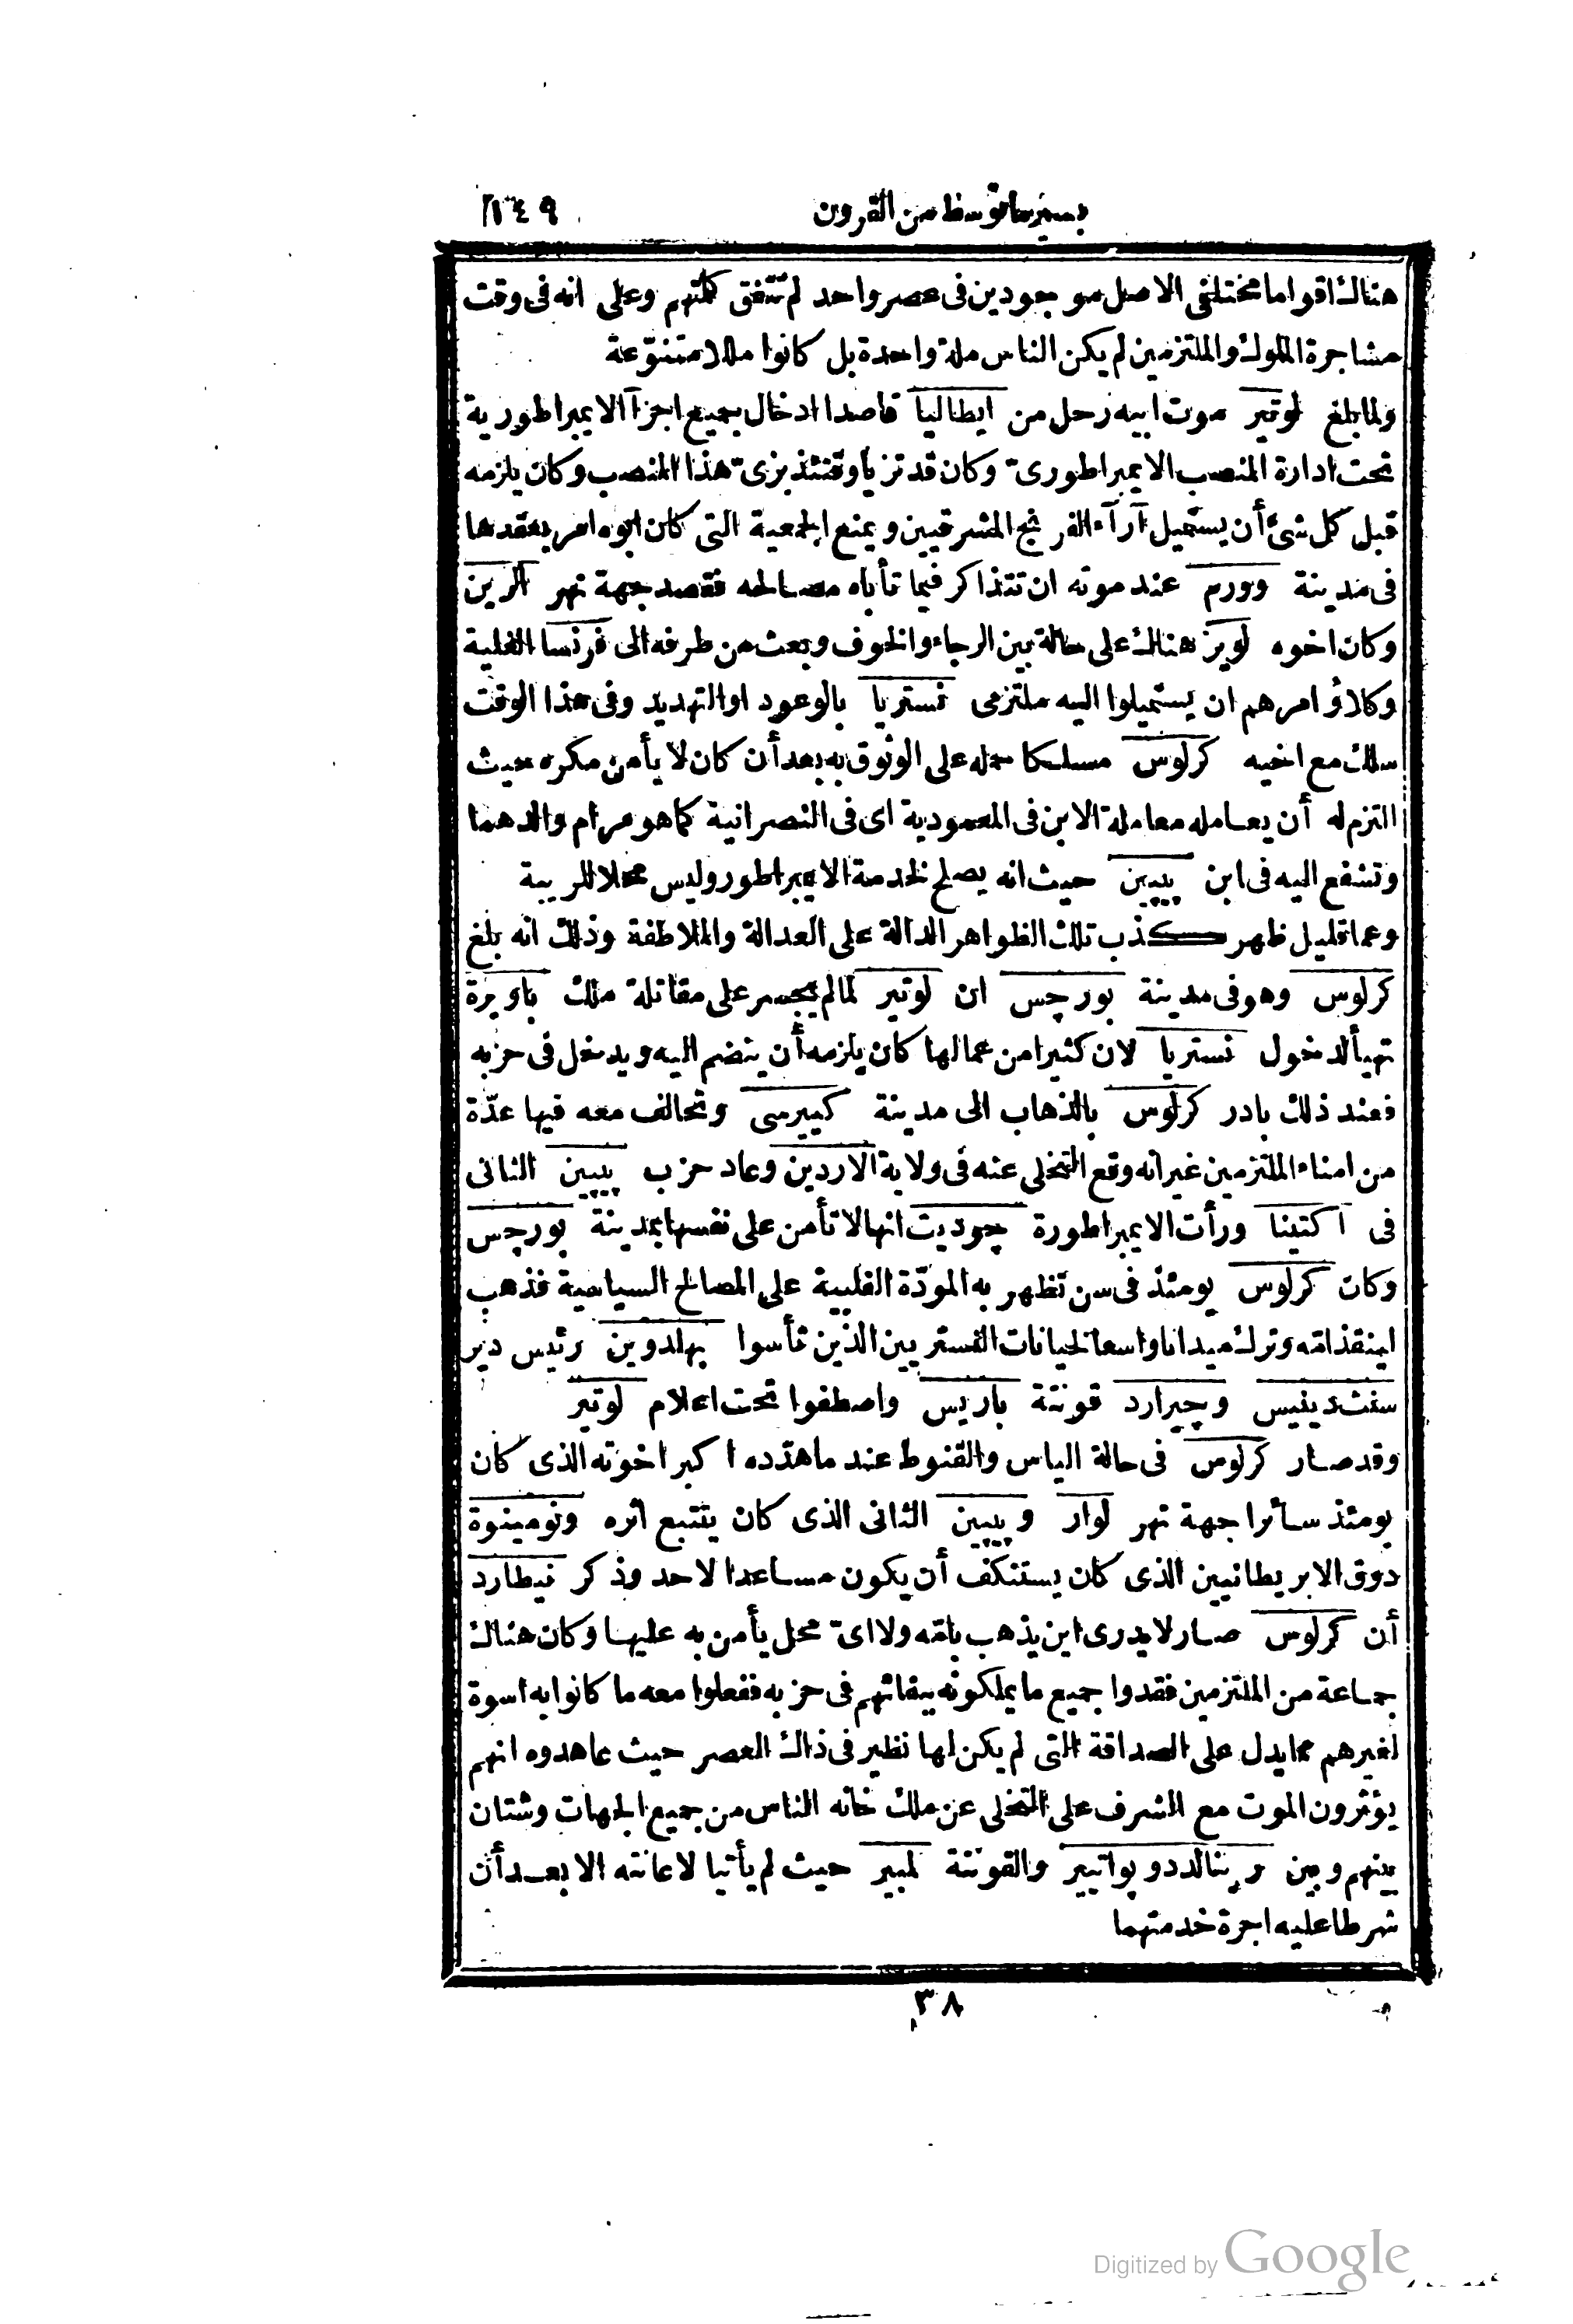 بسير ما توسط من القرون ١٤٩
هناك اقواما مختلفى الاصل موجودين فى عصر واحد لم تتفق كلتهم وعلى انه فى وقت
مشاجرة الملوك والملتزمين لم يكن الناس ملة واحدة بل كانوا مللا متنوّعة
ولما بلغ لوتير موت ابيه رحل من ايطاليا قاصدا ادخال جميع اجزآ الايمبراطورية
تحت ادارة المنصب الايمبراطورىّ وكان قد تزيا وقتئذ بزىّ هذا المنصب وكان يلزمه
قبل كل شئ أن يستميل آرآء الفرنج المشرقيين ويمنع الجمعية التى كان ابوه امر بعقدها
فى مدينة وورم عند موته ان تتذاكر فيما تأباه مصالحه فقصد جهة نهر الرين
وكان اخوه لويز هنالك على حالة بين الرجاء والخوف وبعث من طرفه الى فرنسا الغلية
وكلاؤ امرهم ان يستميلوا اليه ملتزمى نستريا بالوعود او التهديد وفى هذا الوقت
سلك مع اخيه كرلوس مسلكا حمله على الوثوق به بعد أن كان لا يأمن مكره حيث
التزم له أن يعامله معاملة الابن فى المعمودية اى فى النصرانية كما هو مرام والدهما
وتشفع اليه فى ابن پيپين حيث انه يصلح لخدمة الايمبراطور وليس محلا للريبة
وعما قليل ظهر كذب تلك الظواهر الدالة على العدالة والملاطفة وذلك انه بلغ
كرلوس وهو فى مدينة بورچس ان لوتير لما لم يجسر على مقاتلة ملك باويرة
تهيأ لدخول نستريا لان كثيرا من عمالها كان يلزمه أن ينضم اليه ويدخل فى حزبه
فعند ذلك بادر كرلوس بالذهاب الى مدينة كييرسى وتحالف معه فيها عدّة
من امناء الملتزمين غير انه وقع التخلى عنه فى ولاية الاردين وعاد حزب پيپين الثانى
فى اكتينا ورأت الايمبراطورة چوديت انها لا تأمن على نفسها بمدينة بورچس
وكان كرلوس يومئذ فى سن تظهر به المودّة القلبية على المصالح السياسية فذهب
لينقذ امّه وترك ميدانا واسعا لخيانات النستريين الذين تأسوا بهلدوين رئيس دير
سنت دينيس وچيرارد قونتة باريس واصطفوا تحت اعلام لوتير
وقد صار كرلوس فى حالة الياس والقنوط عند ما هدّده اكبر اخوته الذى كان
يومئذ سائرا جهة نهر لوار وپيپين الثانى الذى كان يتتبع اثره ونومينوة
دوق الابريطانيين الذى كان يستنكف أن يكون مساعدا لاحد وذكر نيطارد
أن كرلوس صار لا يدرى اين يذهب بامّه ولا اىّ محل يأمن به عليها وكان هنالك
جماعة من الملتزمين فقدوا جميع ما يملكونه ببقائهم فى حزبه ففعلوا معه ما كانوا به اسوة
لغيرهم مما يدل على الصداقة التى لم يكن لها نظير فى ذاك العصر حيث عاهدوه انهم
يؤثرون الموت مع الشرف على التخلى عن ملك خانه الناس من جميع الجهات وشتان
بينهم وبين رينالد دو پواتيير والقونتة لمبير حيث لم يأتيا لاعانته الا بعد أن
شرطا عليه اجرة خدمتهما
٣٨
Digitized by Google